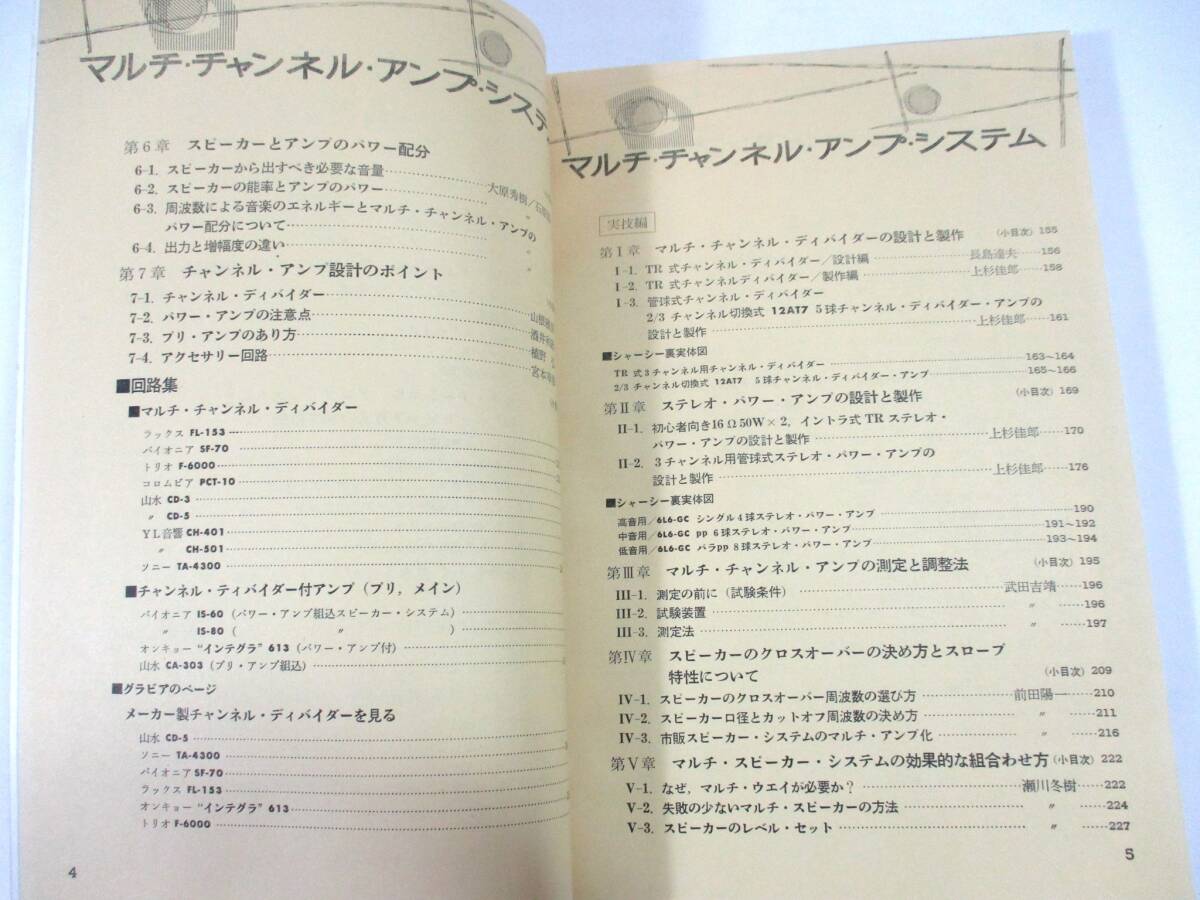 マルチ・チャンネル・アンプ・システ
第6章 スピーカーとアンプのパワー配分
6-1. スピーカーから出すべき必要な音量
6-2. スピーカーの能率とアンプのパワー 大原秀樹/石
6-3. 周波数による音楽のエネルギーとマルチ・チャンネル・アンプの
パワー配分について 〃
6-4. 出力と増幅度の違い 〃
第7章 チャンネル・アンプ設計のポイント
7-1. チャンネル・ディバイダー
7-2. パワー・アンプの注意点 山根
7-3. プリ・アンプのあり方 酒井
7-4. アクセサリー回路 植野
宮本
■回路集
■マルチ・チャンネル・ディバイダー
ラックス FL-153
パイオニア SF-70
トリオ F-6000
コロムビア PCT-10
山水 CD-3
〃 CD-5
YL音響 CH-401
〃 CH-501
ソニー TA-4300
■チャンネル・ティバイダー付アンプ(プリ,メイン)
パイオニア IS-60(パワー・アンプ組込スピーカー・システム)
〃 IS-80( 〃 )
オンキョー "インテグラ" 613(パワー・アンプ付)
山水 CA-303(プリ・アンプ組込)
■グラビアのページ
メーカー製チャンネル・ディバイダーを見る
山水 CD-5
ソニー TA-4300
パイオニア SF-70
ラックス FL-153
オンキョー "インテグラ" 613
トリオ F-6000
4
マルチ・チャンネル・アンプ・システム
実技編
第I章 マルチ・チャンネル・ディバイダーの設計と製作 (小目次) 155
I-1. TR 式チャンネル・ディバイダー/設計編 長島達夫 156
I-2. TR 式チャンネルディバイダー/製作編 上杉佳郎 158
I-3. 管球式チャンネル・ディバイダー
2/3 チャンネル切換式 12AT7 5球チャンネル・ディバイダー・アンプの
設計と製作 上杉佳郎 161
■シャーシー裏実体図
TR 式3チャンネル用チャンネル・ディバイダー 163〜164
2/3 チャンネル切換式 12AT7 5球チャンネル・ディバイダー・アンプ 165〜166
第II章 ステレオ・パワー・アンプの設計と製作 (小目次) 169
II-1. 初心者向き16Ω50W×2,イントラ式 TR ステレオ・
パワー・アンプの設計と製作 上杉佳郎 170
II-2. 3チャンネル用管球式ステレオ・パワー・アンプの
設計と製作 上杉佳郎 176
■シャーシー裏実体図
高音用/6L6-GC シングル4球ステレオ・パワー・アンプ 190
中音用/6L6-GC pp 6球ステレオ・パワー・アンプ 191〜192
低音用/6L6-GC パラpp 8球ステレオ・パワー・アンプ 193〜194
第III章 マルチ・チャンネル・アンプの測定と調整法 (小目次) 195
III-1. 測定の前に(試験条件) 武田吉靖 196
III-2. 試験装置 〃 196
III-3. 測定法 〃 197
第IV章 スピーカーのクロスオーバーの決め方とスロープ
特性について (小目次) 209
IV-1. スピーカーのクロスオーバー周波数の選び方 前田陽一 210
IV-2. スピーカー口径とカットオフ周波数の決め方 〃 211
IV-3. 市販スピーカー・システムのマルチ・アンプ化 〃 216
第V章 マルチ・スピーカー・システムの効果的な組合わせ方 (小目次) 222
V-1. なぜ,マルチ・ウエイが必要か? 瀬川冬樹 222
V-2. 失敗の少ないマルチ・スピーカーの方法 〃 224
V-3. スピーカーのレベル・セット 〃 227
5